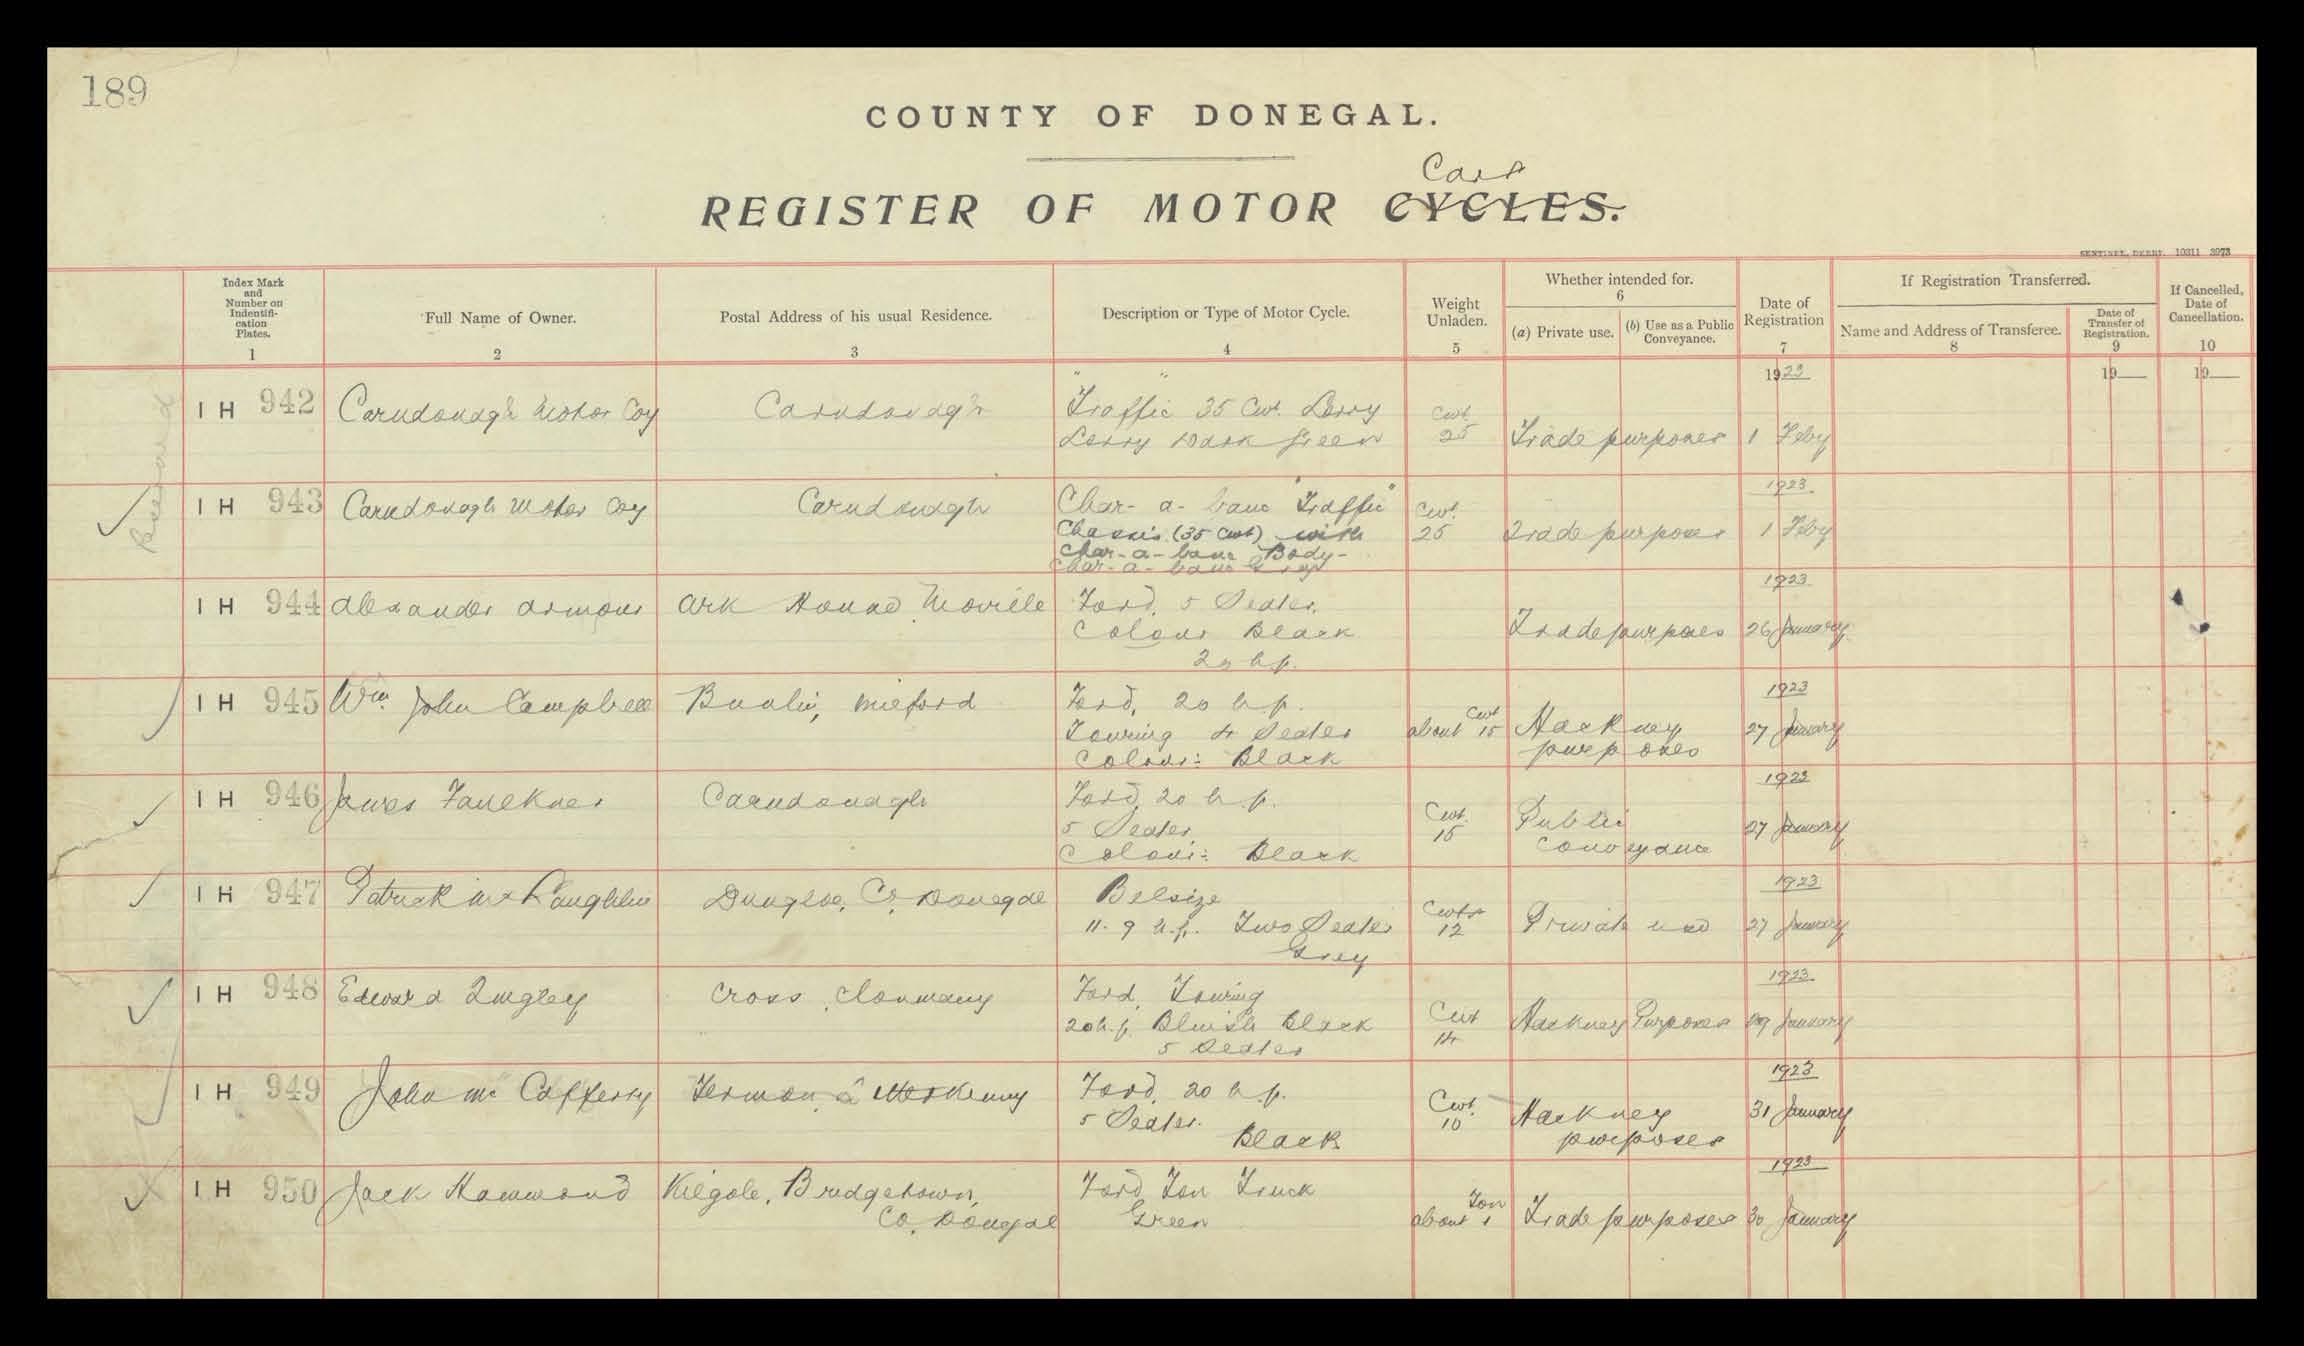 189
COUNTY OF DONEGAL.
Cars
REGISTER OF MOTOR CYCLES.
SENTINEL, DERRY. 10311 3973
Index Mark and Number on Indentifi-cation Plates. 1
Full Name of Owner. 2
Postal Address of his usual Residence. 3
Description or Type of Motor Cycle. 4
Weight Unladen. 5
Whether intended for. 6
(a) Private use.
(b) Use as a Public Conveyance.
Date of Registration 7
If Registration Transferred.
Name and Address of Transferee. 8
Date of Transfer of Registration. 9
If Cancelled, Date of Cancellation. 10
1923 19 19
IH 942 Carndonagh Motor Coy Carndonagh "Traffic" 35 Cwt. Lorry Cwt. 25 Trade purposes 1 Feby
Lorry Dark Green
1923
IH 943 Carndonagh Motor Coy Carndonagh Char-a-banc "Traffic" Cwt. 25 Trade purposes 1 Feby
Chassis (35 Cwt) with
Char-a-banc Body-
Char-a-banc Grey
1923
IH 944 Alexander Armour Ark House, Moville Ford, 5 Seater. Trade purposes 26 January
Colour Black
20 h.p.
1923
IH 945 Wm. John Campbell Milford Ford, 20 h.p. about Cwt 15 Hackney purposes 27 January
Touring 4 Seater
Colour: Black
1923
IH 946 James Faulkner Carndonagh Ford, 20 h.p. Cwt. 15 Public Conveyance 27 January
5 Seater
Colour: Black
1923
IH 947 Patrick McLaughlin Dungloe, Co. Donegal Belsize Cwts 12 Private use 27 January
11.9 h.p. Two Seater
Grey
1923
IH 948 Edward Quigley Cross, Clonmany Ford, Touring Cwt 14 Hackney Purposes January
20 h.p. Bluish Black
5 Seater
1923
IH 949 John Mc Cafferty Termon, Ford, 20 h.p. Cwt. 10 Hackney purposes 31 January
5 Seater.
Black
1923
IH 950 Jack Hammond Kilgole, Bridgetown, Ford Ton Truck about Ton 1 Trade purposes 30 January
Co. Dongal Green